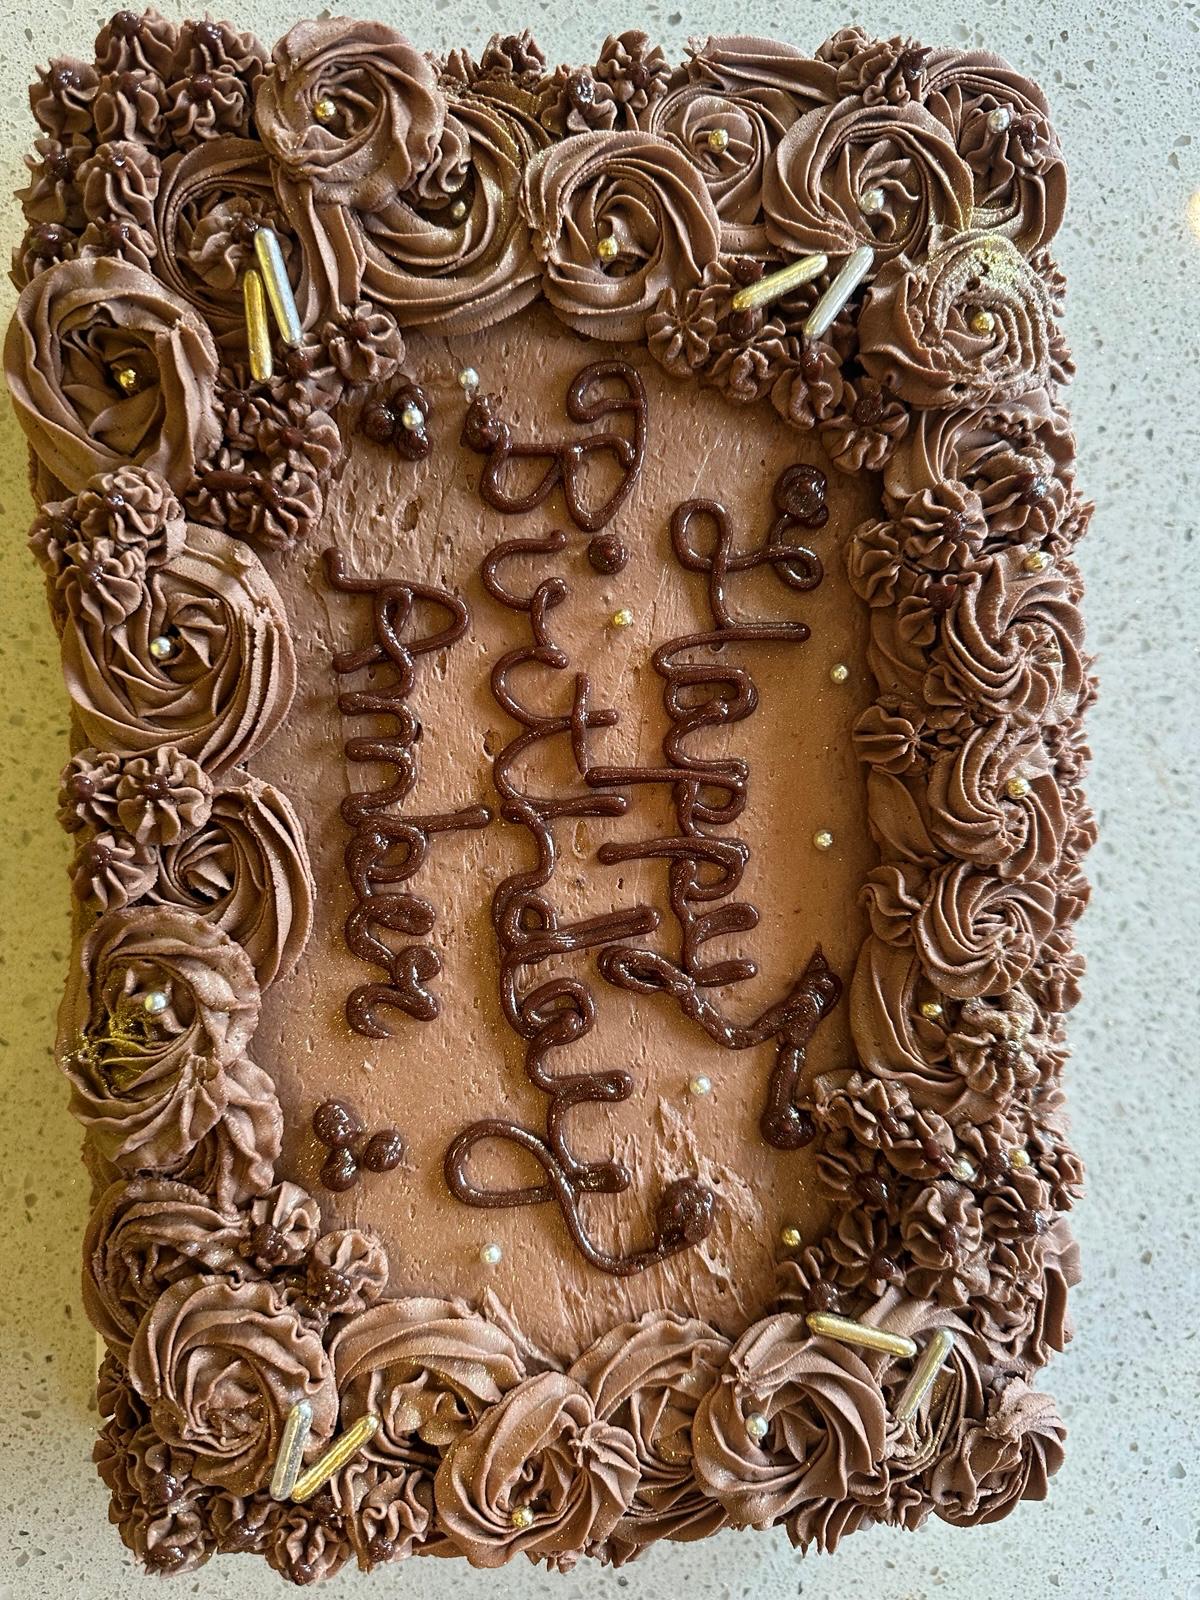 Happy
Birthday
Amber